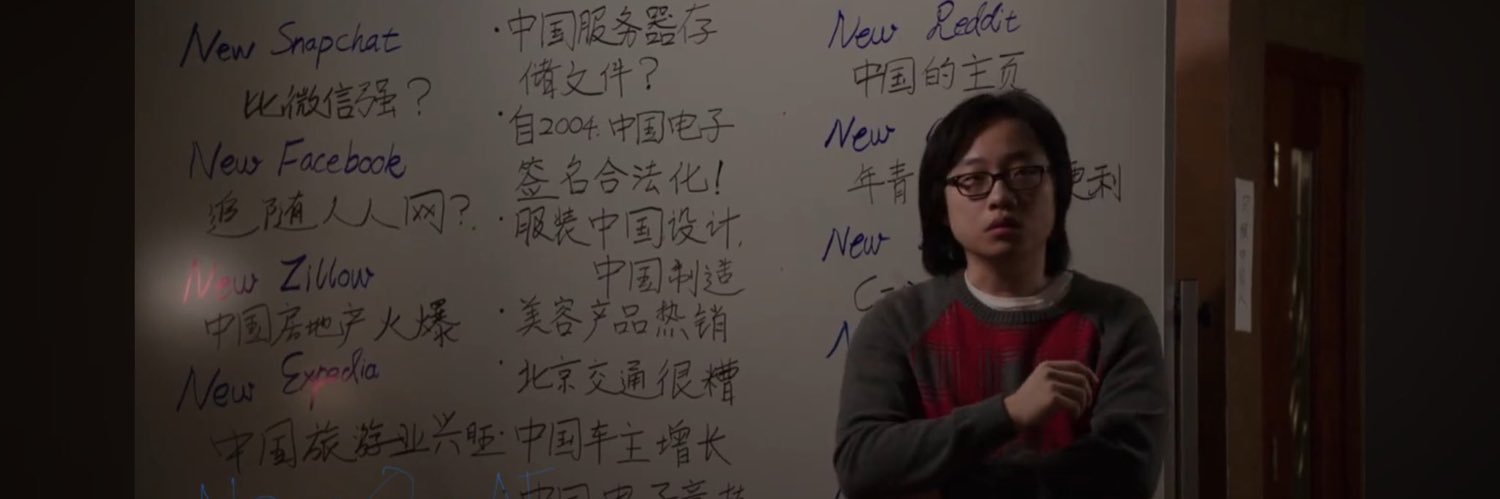 New Snapchat
比微信强？
New Facebook
追随人人网？
New Zillow
中国房地产火爆
New Expedia
中国旅游业兴旺
·中国服务器存
储文件？
·自2004.中国电子
签名合法化！
·服装中国设计，
中国制造
·美容产品热销
·北京交通很糟
·中国车主增长
New Reddit
中国的主页
New
年青
便利
New